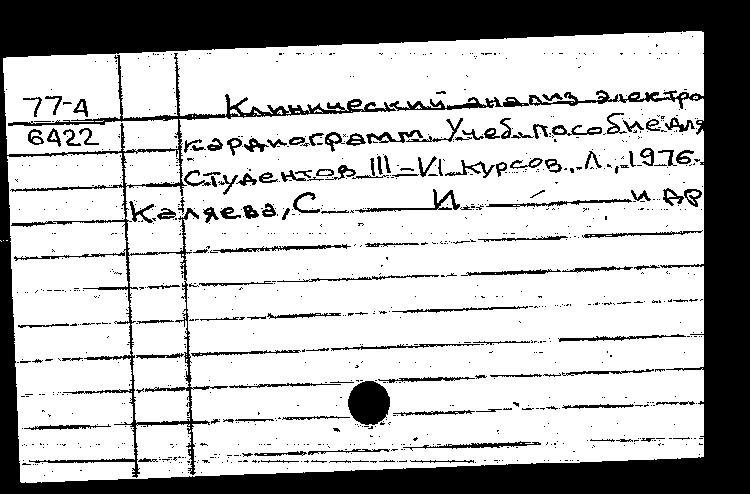 77-4
6422
Клинический анализ электро
кардиограмм. Учеб. пособие для
студентов III-VI курсов. Л., 1976.
Каляева, С И и др